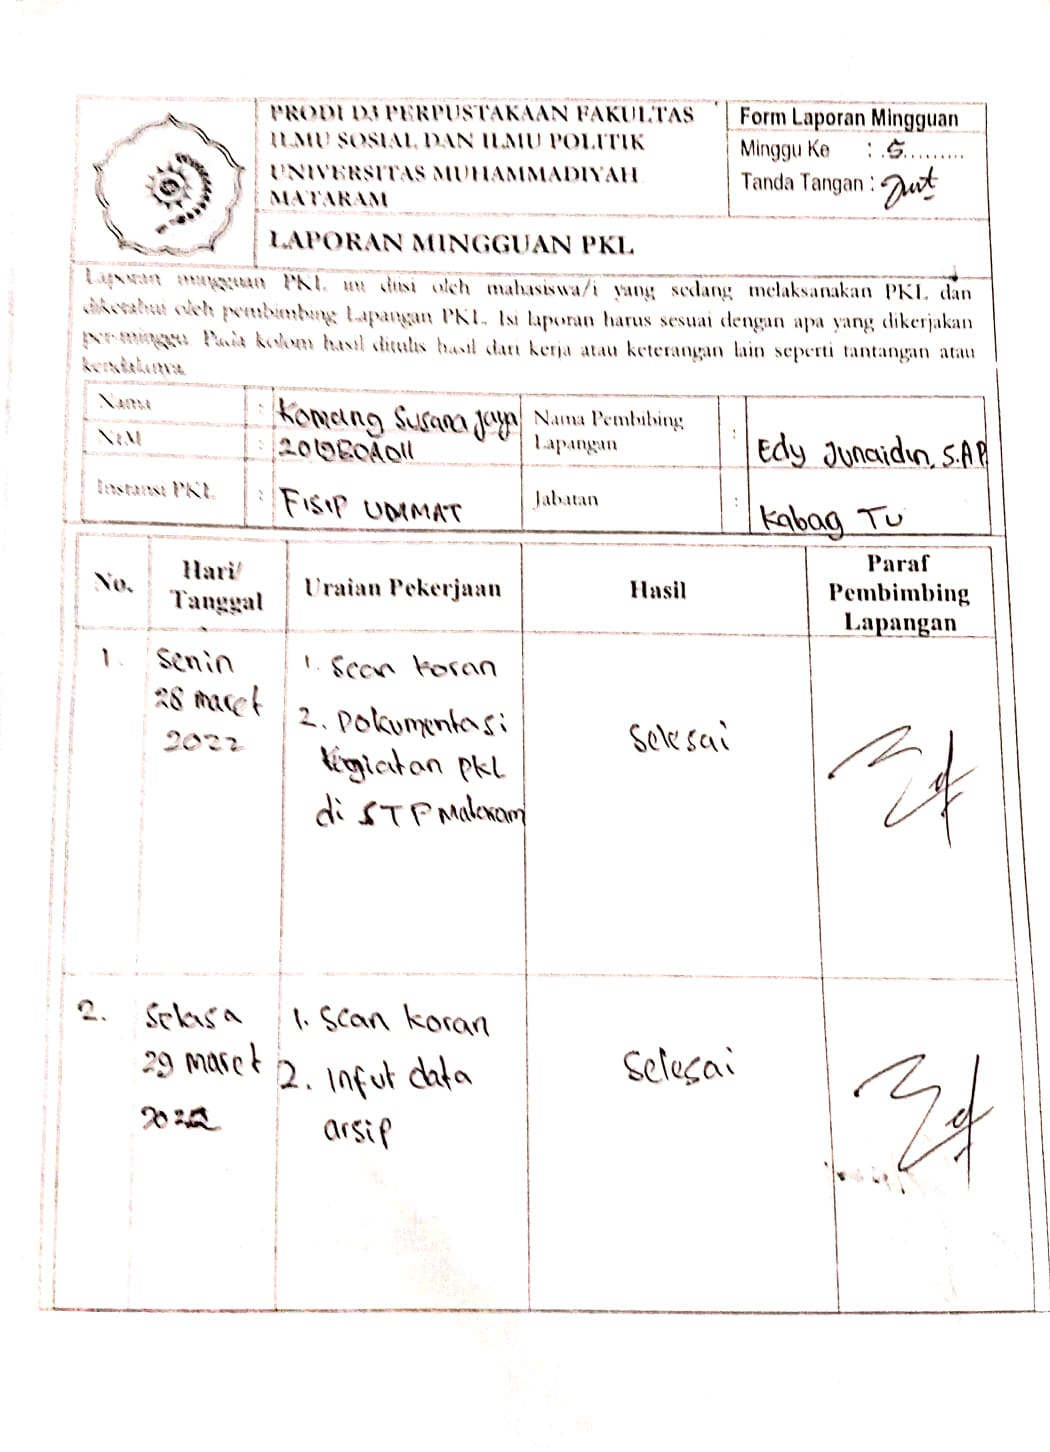 PRODI D3 PERPUSTAKAAN FAKULTAS
ILMU SOSIAL DAN ILMU POLITIK
UNIVERSITAS MUHAMMADIYAH
MATARAM
LAPORAN MINGGUAN PKL
Form Laporan Mingguan
Minggu Ke : .5.........
Tanda Tangan :
Laporan mingguan PKL ini diisi oleh mahasiswa/i yang sedang melaksanakan PKL dan
diketahui oleh pembimbing Lapangan PKL. Isi laporan harus sesuai dengan apa yang dikerjakan
per-minggu. Pada kolom hasil ditulis hasil dari kerja atau keterangan lain seperti tantangan atau
kendalanya.
Nama : Komang Susana Jaya
NIM :
Instansi PKL : FISIP UMMAT
Nama Pembibing
Lapangan : Edy Junaidin, S.AP
Jabatan : Kabag TU
No. Hari/ Tanggal Uraian Pekerjaan Hasil Paraf Pembimbing Lapangan
1. Senin
28 maret
2022
1. Scan koran
2. Dokumentasi
kegiatan PKL
di STP Mataram
Selesai
2. Selasa
29 maret
2022
1. Scan koran
2. Input data
arsip
Selesai